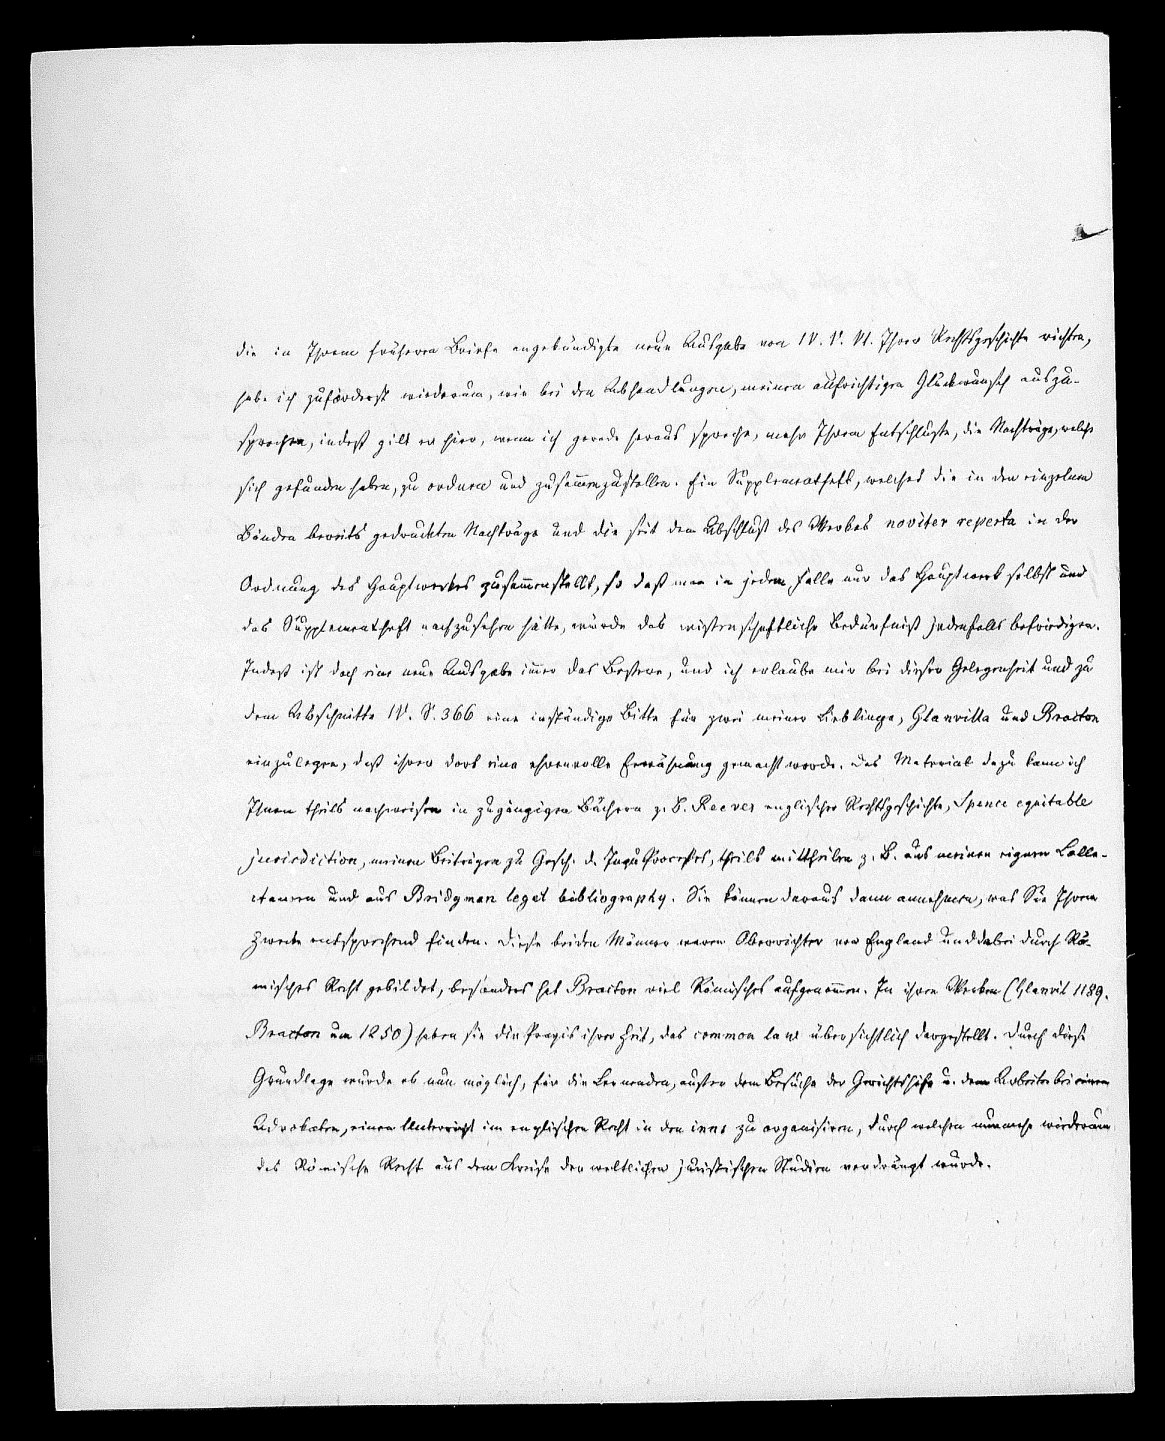 die in Ihrem früheren Briefe angekündigte neue Ausgabe von IV. V. VI. Ihrer Rechtsgeschichte richten,
habe ich zuförderst wiederum, wie bei den Abhandlungen, meinen aufrichtigen Glückwunsch auszu-
sprechen, indeß gilt er hier, wenn ich gerade heraus spreche, mehr Ihrem Entschlusse, die Nachträge, welche
sich gefunden haben, zu ordnen und zusammenzustellen. Ein Supplementheft, welches die in den einzelnen
Bänden bereits gedruckten Nachträge und die seit dem Abschluß des Werkes noviter reperta in der
Ordnung des Hauptwerkes zusammenstellt, so daß man in jedem Falle nur das Hauptwerk selbst und
das Supplementheft nachzusehen hätte, würde das wissenschaftliche Bedürfniß jedenfalls befriedigen.
Indeß ist doch eine neue Ausgabe immer das Bessere, und ich erlaube mir bei dieser Gelegenheit und zu
dem Abschnitte IV. S. 366 eine inständige Bitte für zwei meiner Lieblinge, Glanvilla und Bracton
einzulegen, daß ihrer dort eine ehrenvolle Erwähnung gemacht werde. Das Material dazu kann ich
Ihnen theils nachweisen in zugängigen Büchern z. B. Reeves englischer Rechtsgeschichte, Spence equitable
jurisdiction, meinen Beiträgen zu Gesch. d. Inquis.processes, theils mittheilen z. B. aus meinen eignen Colle-
ctaneen und aus Bridgman legal bibliography. Sie können daraus dann annehmen, was Sie Ihrem
Zwecke entsprechend finden. Diese beiden Männer waren Oberrichter von England und dabei durch Rö-
misches Recht gebildet, besonders hat Bracton viel Römisches aufgenommen. In ihren Werken (Glanvil 1189.
Bracton um 1250) haben sie die Praxis ihrer Zeit, das common law übersichtlich dargestellt. Durch diese
Grundlage wurde es nun möglich, für die Lernenden, außer dem Besuche der Gerichtshöfe u. dem Arbeiten bei einem
Advokaten, einen Unterricht im englischen Recht in den inns zu organisiren, durch welchen nunmehr wiederum
das Römische Recht aus dem Kreise der weltlichen juristischen Studien verdrängt wurde.